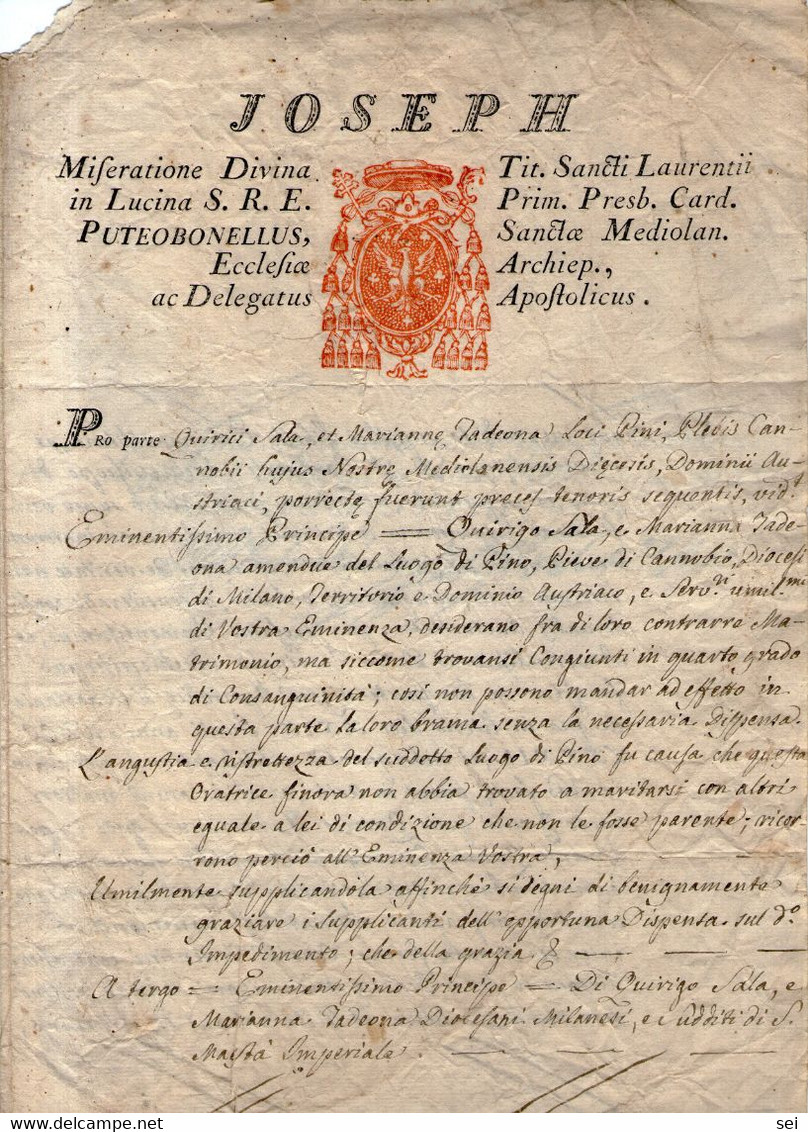 JOSEPH
Miſeratione Divina Tit. Sancti Laurentii
in Lucina S. R. E. Prim. Presb. Card.
PUTEOBONELLUS, Sanctæ Mediolan.
Eccleſiæ Archiep.,
ac Delegatus Apoſtolicus.
PRO parte Quirici Sala, et Mariannę Tadeona Loci Pini, Plebis Can-
nobii hujus Nostrę Mediolanensis Dięcesis, Dominii Au-
striaci, porrectę fuerunt preces tenoris sequentis, vidt.
Eminentiſsimo Principe = Quirigo Sala, e Marianna Tade-
ona amendue del Luogo di Pino, Pieve di Cannobio, Diocesi
di Milano, Territorio e Dominio Austriaco, e Serv.ri umil.mi
di Vostra Eminenza, desiderano fra di loro contrarre Ma-
trimonio, ma siccome trovansi Congiunti in quarto grado
di Consanguinità; così non possono mandar ad effetto in
questa parte la loro brama senza la necessaria Dispensa.
L'angustia e ristrettezza del suddetto Luogo di Pino fu causa che questa
Oratrice finora non abbia trovato a maritarsi con altri
eguale a lei di condizione che non le fosse parente; ricor-
rono perciò all'Eminenza Vostra,
Umilmente supplicandola affinchè si degni di benignamente
graziare i Supplicanti dell'opportuna Dispensa sul d.o
Impedimento; che della grazia &
A tergo = Eminentiſsimo Principe = Di Quirigo Sala, e
Marianna Tadeona Diocesani Milanesi, e sudditi di S.
Maestà Imperiale.
sei